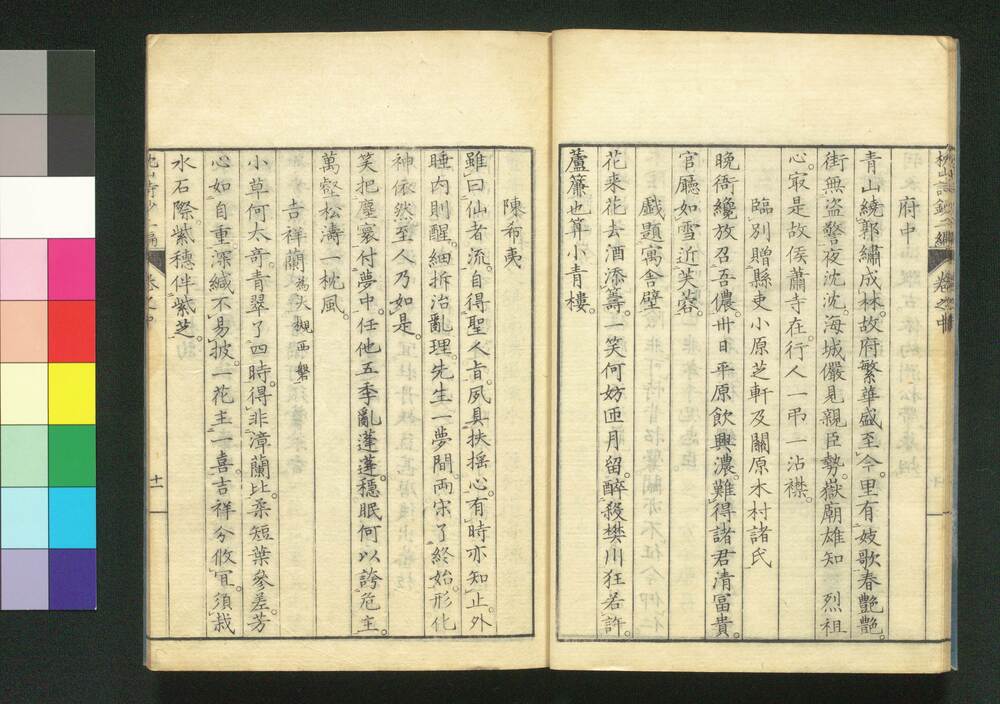 府中
青山繞郭繡成林。故府繁華盛至今。里有妓歌春艷艷。
街無盜警夜沈沈。海城儼見親臣勢。嶽廟雄知　烈祖
心。寂是故侯蕭寺在。行人一弔一沾襟。
臨別贈縣吏小原芝軒及關原木村諸氏
晚衙纔放召吾儂。卅日平原飲興濃。難得諸君清冨貴
官廳如雪近芙蓉。
戲題寓舍壁
花来花去酒添籌。一笑何妨匝月留。醉殺樊川狂若許。
蘆簾也算小青樓。
陳希夷
雖曰仙者流。自得聖人旨。夙具扶搖心。有時亦知止。外
睡内則醒。細拆治亂理。先生一夢間。兩宋了終始。形化
神依然。至人乃如是。
笑把塵寰付夢中。任他五季亂蓬蓬。穩眠何以誇危主。
萬壑松濤一枕風。
吉祥蘭為大槻西磐
小草何太奇。青翠了四時。得非漳蘭比。柔短葉參差。芳
心如自重。深緘不易披。一花主一喜。吉祥兮攸宜。須栽
水石際。紫穗伴紫芝。
十一